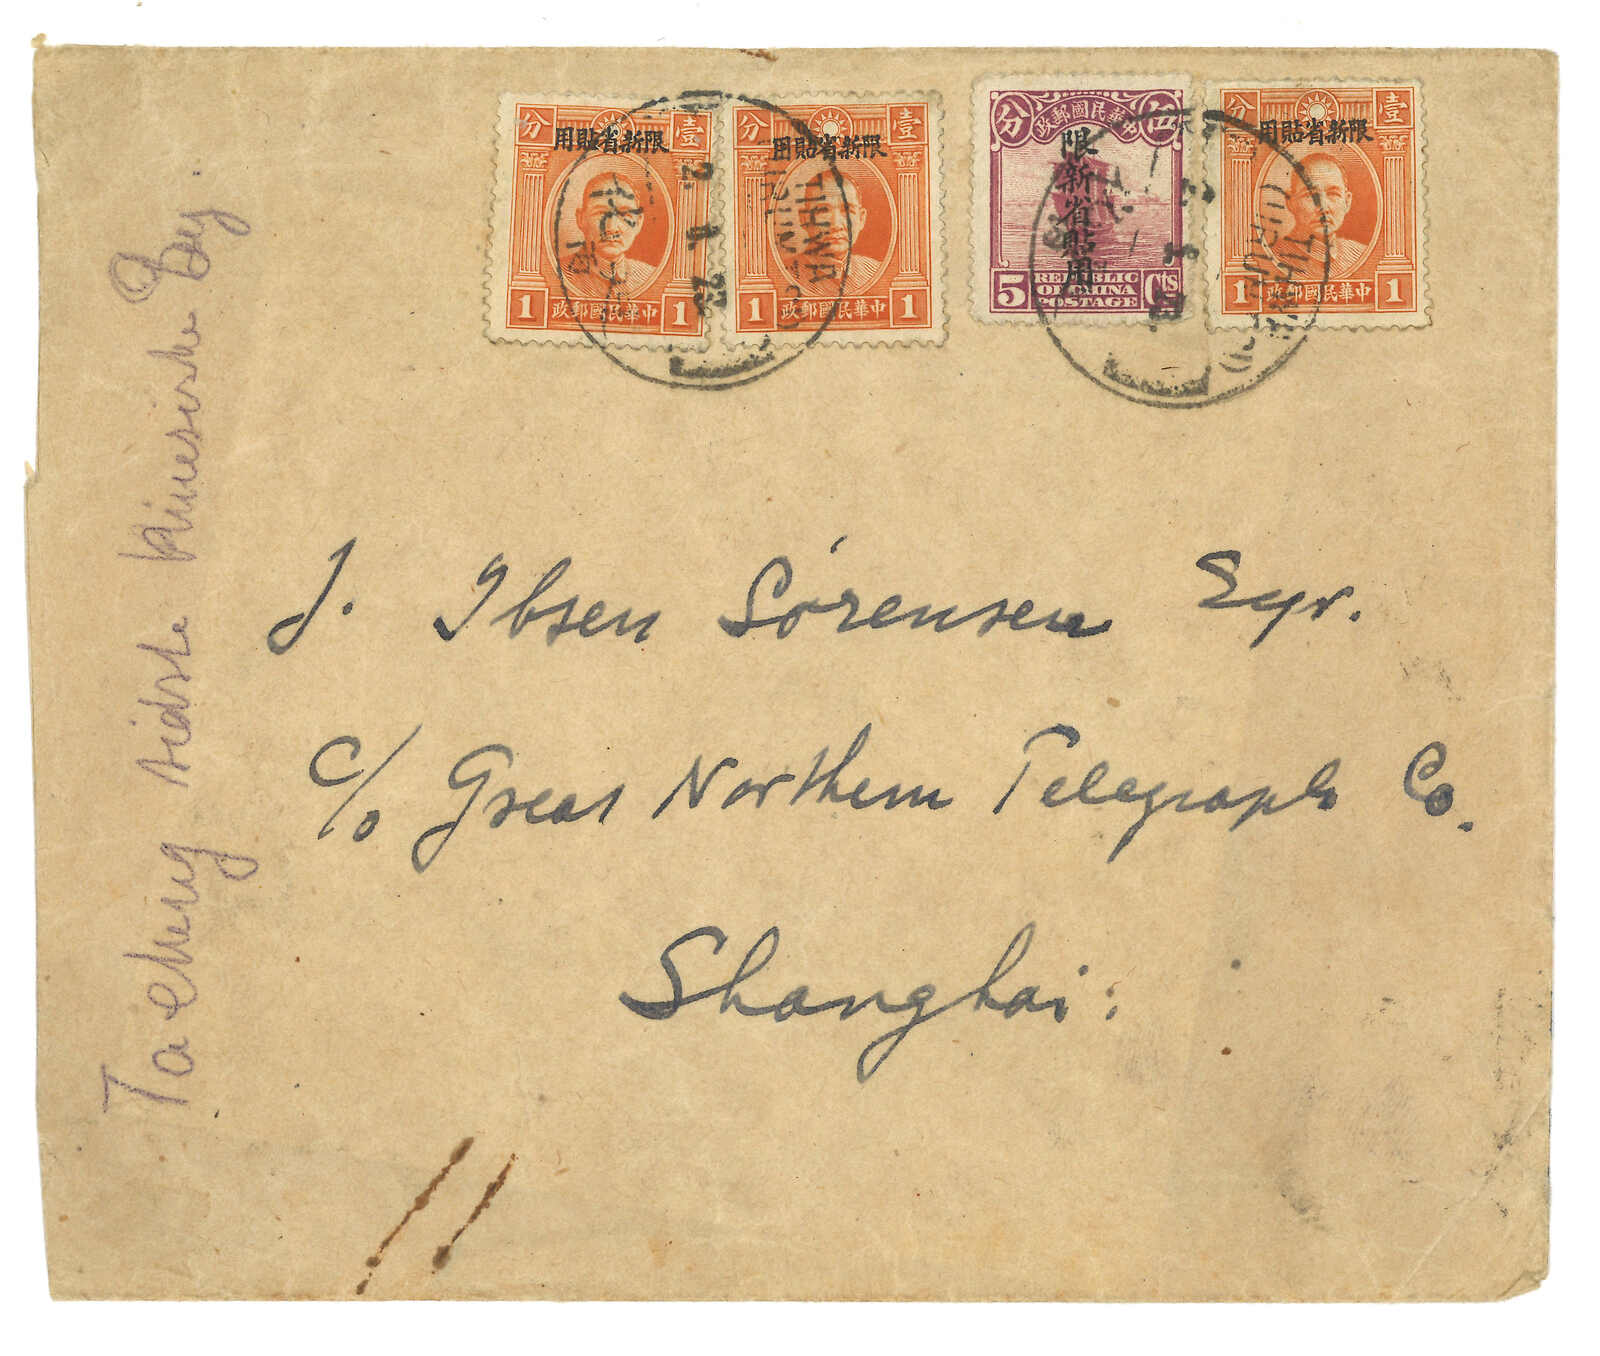 分 壹
限新省貼用
1 中華民國郵政 1
分 壹
限新省貼用
1 中華民國郵政 1
分 中華民國郵政 伍
限新省貼用
5 REPUBLIC OF CHINA POSTAGE Cts
分 壹
限新省貼用
1 中華民國郵政 1
TIHWA
TIHWA
J. Ibsen Sørensen Esqr.
c/o Great Northern Telegraph Co.
Shanghai.
Tacheng sidste kinesiske By.